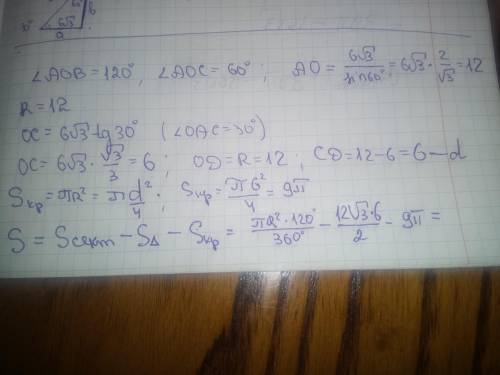 6√3
a
∠AOB = 120°, ∠AOC = 60°; AO = 6√3/sin60° = 6√3 · 2/√3 = 12
R = 12
OC = 6√3 · tg30° (∠OAC = 30°)
OC = 6√3 · √3/3 = 6; OD = R = 12; CD = 12 - 6 = 6 — d
Sкр = πR² = πd²/4. Sкр = π6²/4 = 9π
S = Sсект - S∆ - Sкр = πR² · 120°/360° - 12√3 · 6/2 - 9π =